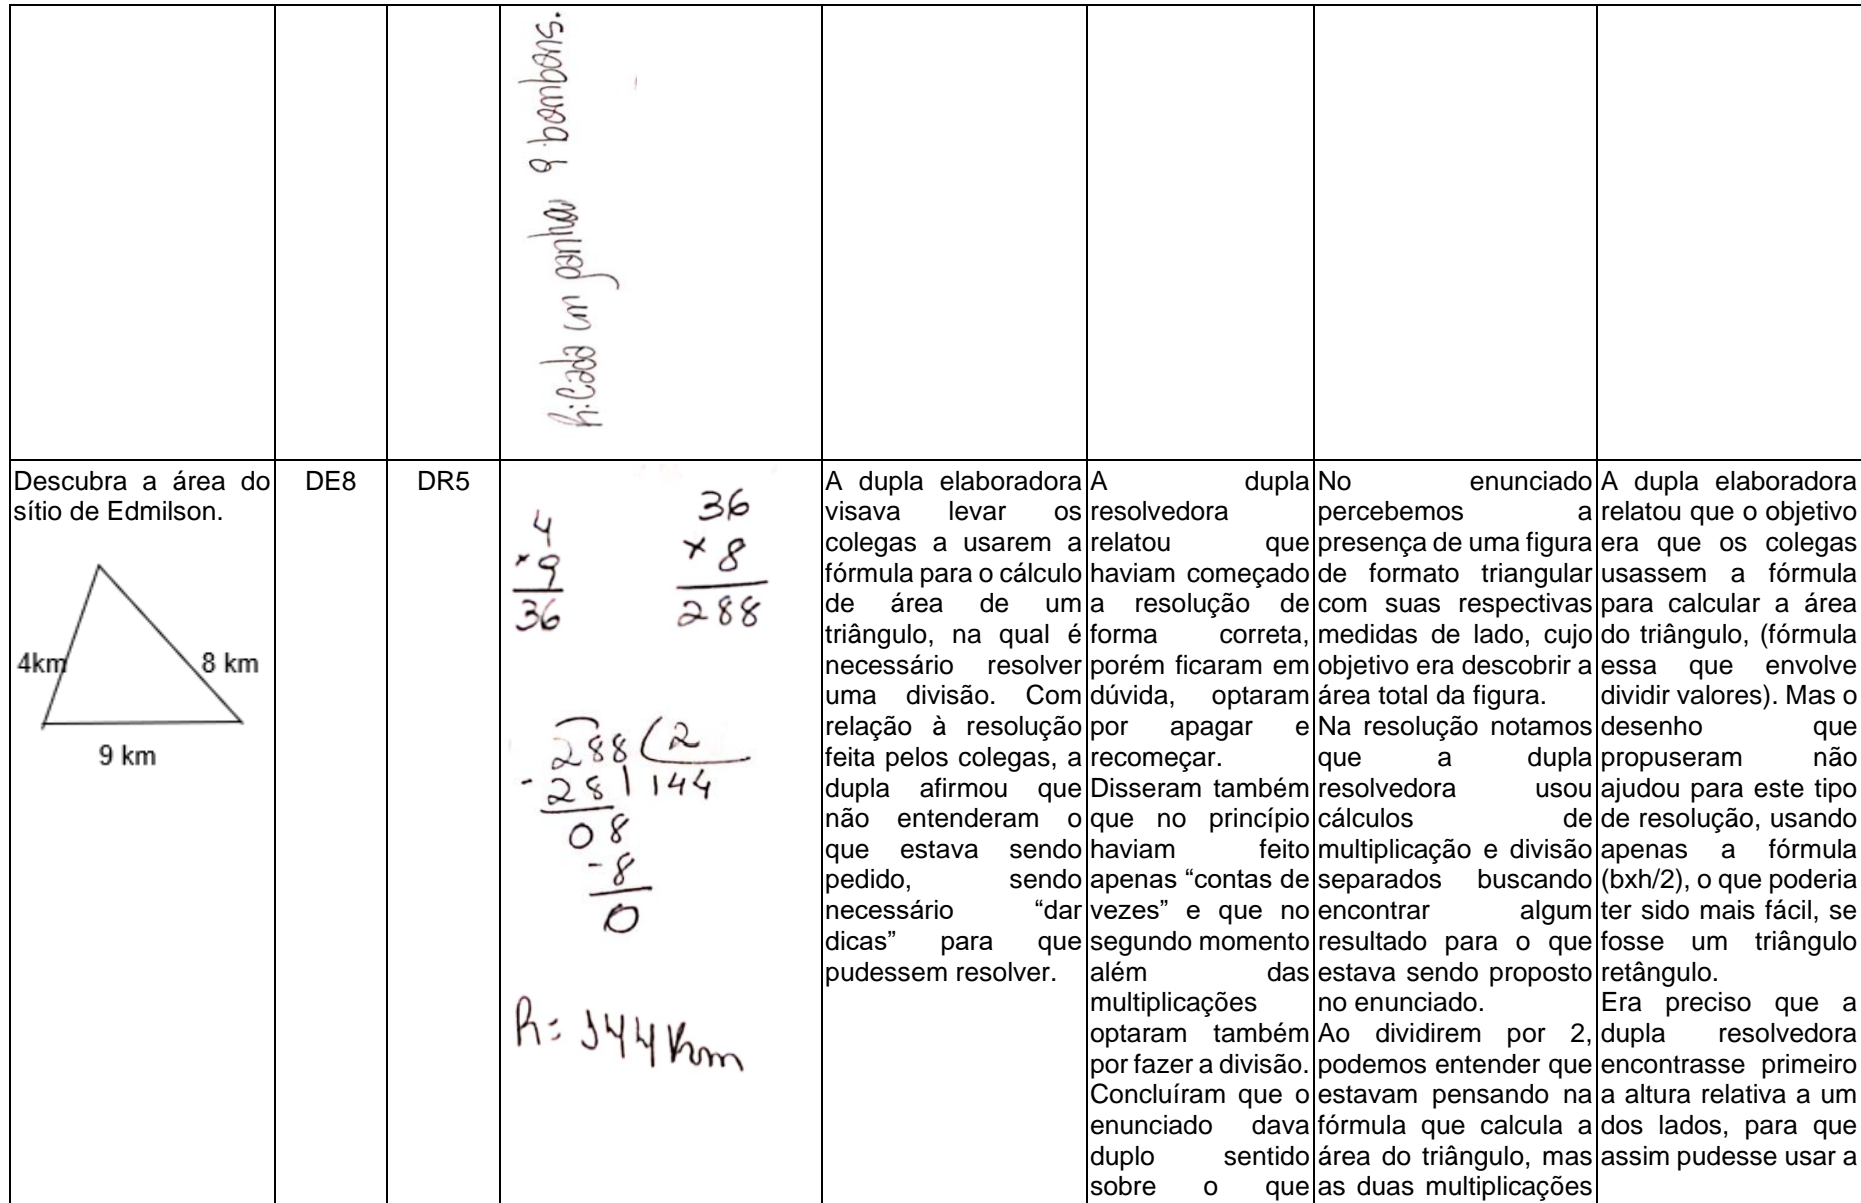 R: Cada um ganhou 9 bombons.
Descubra a área do
sítio de Edmilson.
4km
8 km
9 km
DE8
DR5
4
× 9
36
36
× 8
288
288 2
- 28 144
08
- 8
0
R= 144 Km
A dupla elaboradora
visava levar os
colegas a usarem a
fórmula para o cálculo
de área de um
triângulo, na qual é
necessário resolver
uma divisão. Com
relação à resolução
feita pelos colegas, a
dupla afirmou que
não entenderam o
que estava sendo
pedido, sendo
necessário “dar
dicas” para que
pudessem resolver.
A dupla
resolvedora
relatou que
haviam começado
a resolução de
forma correta,
porém ficaram em
dúvida, optaram
por apagar e
recomeçar.
Disseram também
que no princípio
haviam feito
apenas “contas de
vezes” e que no
segundo momento
além das
multiplicações
optaram também
por fazer a divisão.
Concluíram que o
enunciado dava
duplo sentido
sobre o que
No enunciado
percebemos a
presença de uma figura
de formato triangular
com suas respectivas
medidas de lado, cujo
objetivo era descobrir a
área total da figura.
Na resolução notamos
que a dupla
resolvedora usou
cálculos de
multiplicação e divisão
separados buscando
encontrar algum
resultado para o que
estava sendo proposto
no enunciado.
Ao dividirem por 2,
podemos entender que
estavam pensando na
fórmula que calcula a
área do triângulo, mas
as duas multiplicações
A dupla elaboradora
relatou que o objetivo
era que os colegas
usassem a fórmula
para calcular a área
do triângulo, (fórmula
essa que envolve
dividir valores). Mas o
desenho que
propuseram não
ajudou para este tipo
de resolução, usando
apenas a fórmula
(bxh/2), o que poderia
ter sido mais fácil, se
fosse um triângulo
retângulo.
Era preciso que a
dupla resolvedora
encontrasse primeiro
a altura relativa a um
dos lados, para que
assim pudesse usar a